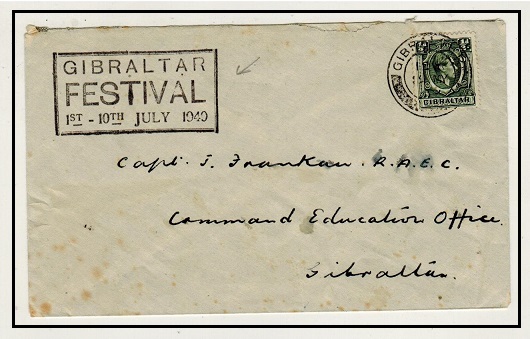 GIBRALTAR
FESTIVAL
1ST - 10TH JULY 1949
½D
GIBRALTAR
Capt. J. Frankau. R.A.E.C.
Command Education Office.
Gibraltar.